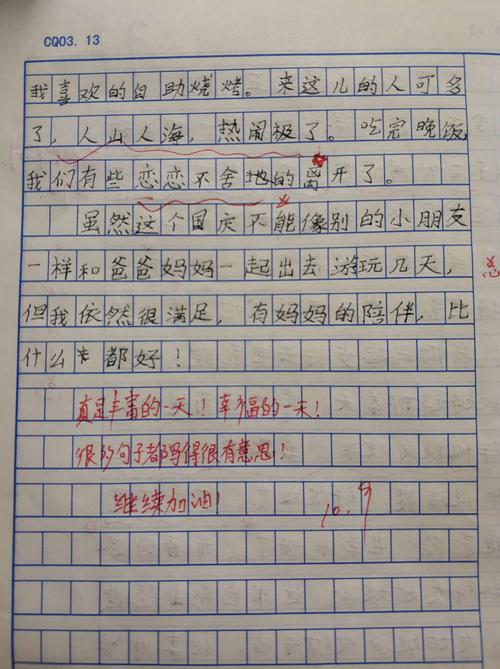 CQ03. 13
我喜欢的自助烧烤。来这儿的人可多
了,人山人海,热闹极了。吃完晚饭
我们有些恋恋不舍地的离开了。
虽然这个国庆不能像别的小朋友
一样和爸爸妈妈一起出去游玩几天,
但我依然很满足,有妈妈的陪伴,比
什么都好!
真是丰富的一天!幸福的一天!
很多句子都写得很有意思!
继续加油!
10.9